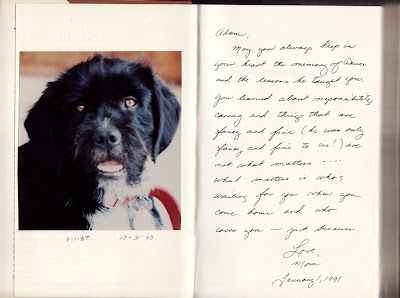 9-1-87 10-31-90
Adam,
May you always keep in
your heart the memory of
and the lessons he taught you.
You learned about responsibility,
caring and things that are
fancy and fine (he was only
fancy and fine to us!) are
not what matters ....
what matters is who's
waiting for you when you
come home and who
loves you — just because.
Love,
Mom
January 1, 1991